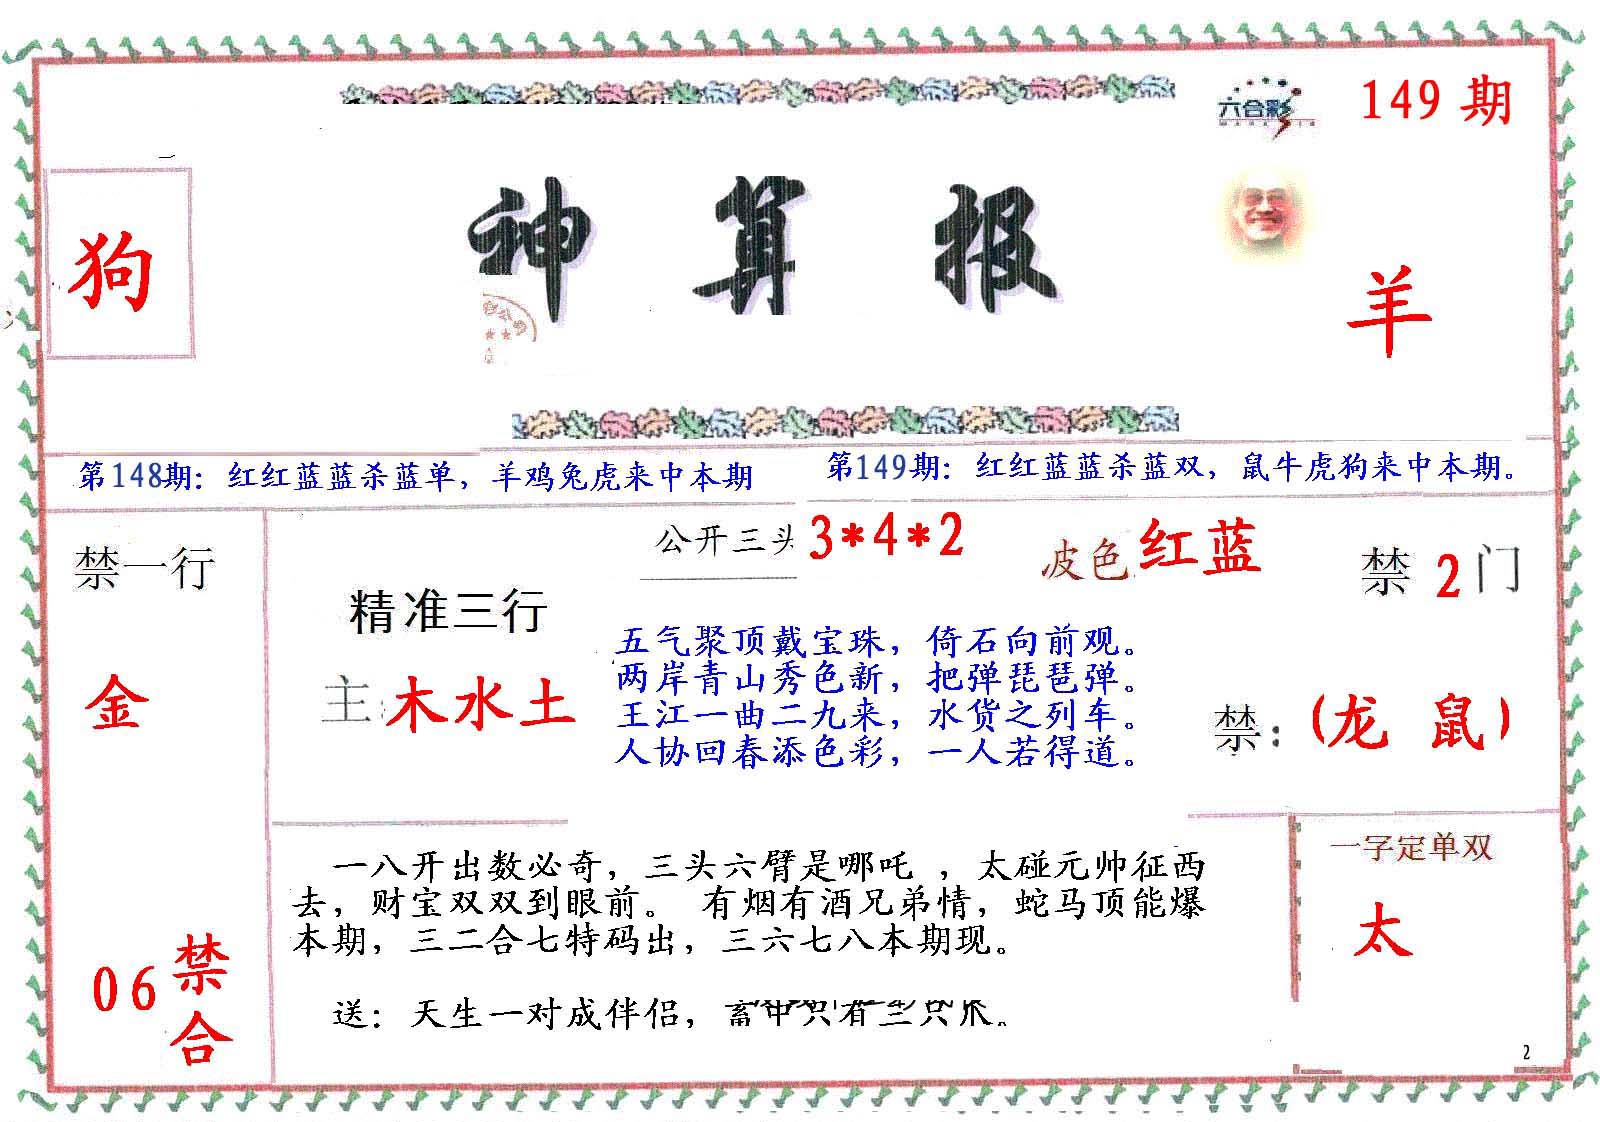 六合彩
149 期
狗
神算报
羊
第148期：红红蓝蓝杀蓝单，羊鸡兔虎来中本期
第149期：红红蓝蓝杀蓝双，鼠牛虎狗来中本期。
禁一行
公开三头 3*4*2
皮色 红蓝
禁 2 门
精准三行
主：木水土
金
五气聚顶戴宝珠，倚石向前观。
两岸青山秀色新，把弹琵琶弹。
王江一曲二九来，水货之列车。
人协回春添色彩，一人若得道。
禁：(龙 鼠)
一八开出数必奇，三头六臂是哪吒 ，太碰元帅征西
去，财宝双双到眼前。 有烟有酒兄弟情，蛇马顶能爆
本期，三二合七特码出，三六七八本期现。
送：天生一对成伴侣，畜中只有三只爪。
一字定单双
太
06 禁合
2